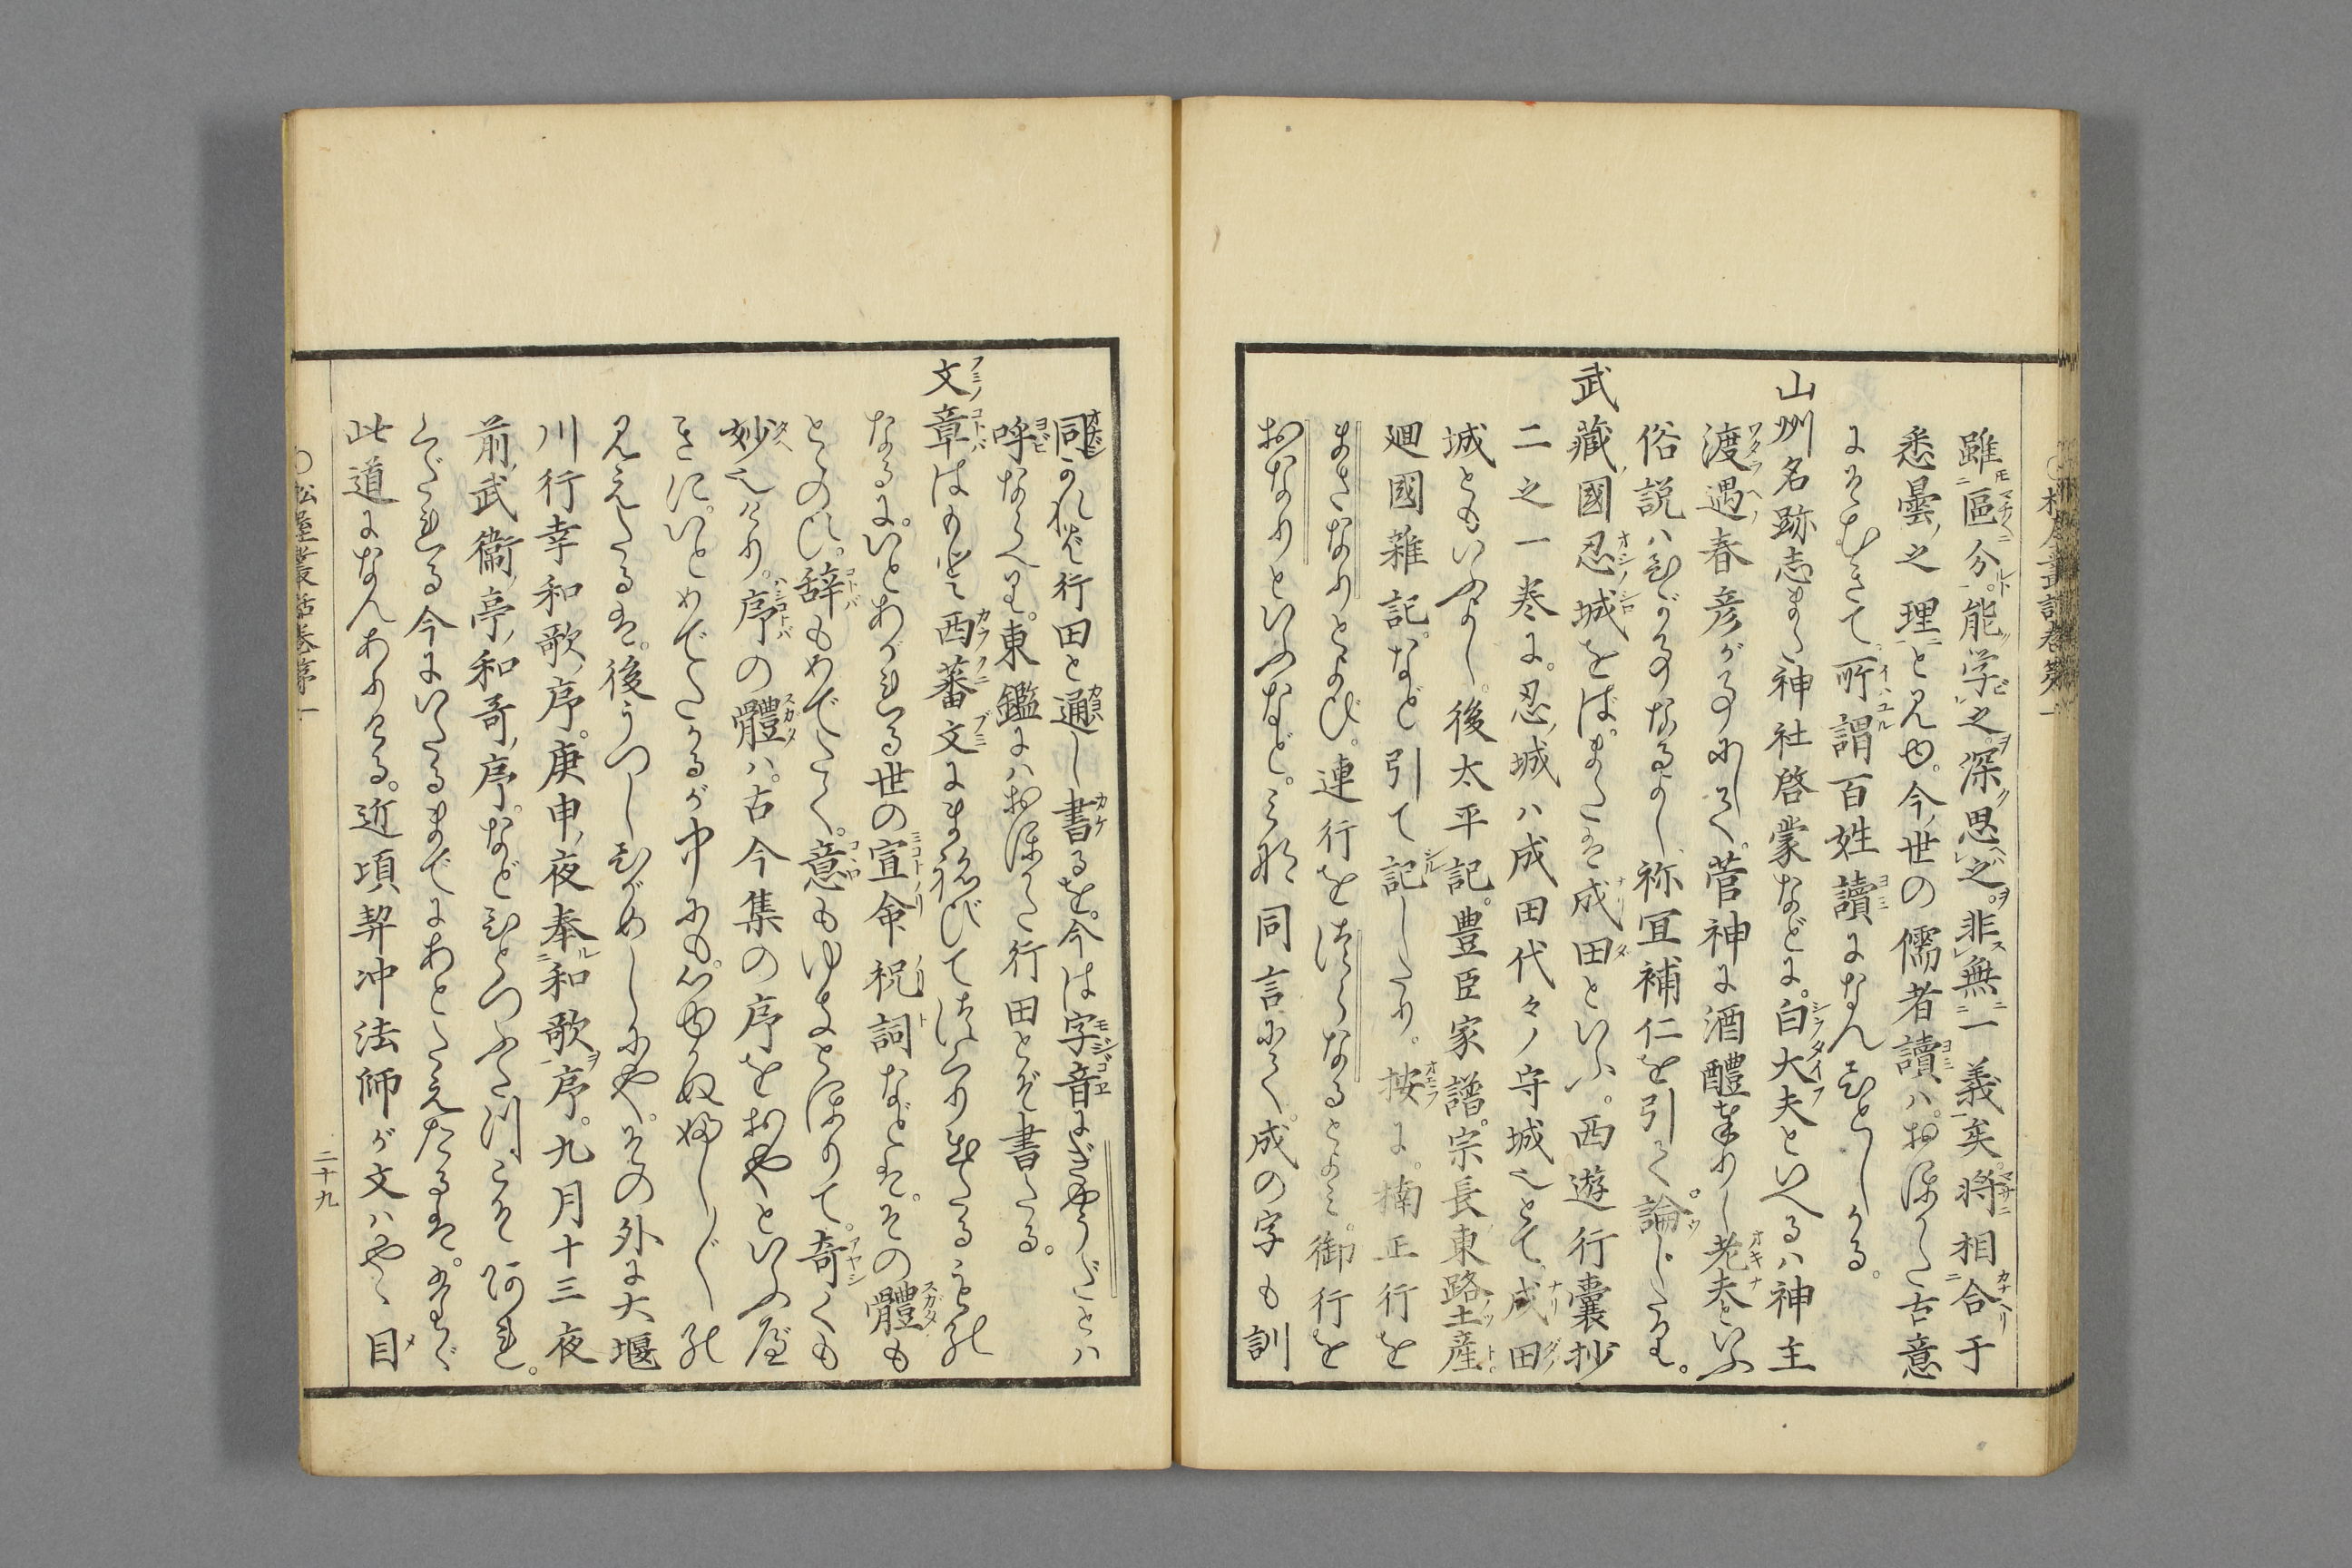 雖區分能学之深思之非無一義矣将相合于
悉曇之理と見ゆ。今世の儒者讀ハ。おほかた古意
にそむきて。所謂百姓讀になんひとしかる。
山州名跡志また神社啓蒙などに。白大夫といへるハ神主
渡遇春彦が事にして。菅神に酒醴奉りし老夫といふ
俗説ハひが事なるよし祢冝補仁を引て論じたり。
武蔵國忍城をば。またを成田といふ。西遊行嚢抄
二之一巻に。忍城ハ成田代々ノ守城也とて。成田
城ともいふよし。後太平記。豊臣家譜。宗長東路土産
廻國雜記。など引て記したり。按に。楠正行を
まさなりとよび。連行をつらなるとよミ。御行を
おなりといふなど。ミな同言にて。成の字も訓
同かれば行田と通し書るを。今は字音にぎやうだとハ
呼ならへり。東鑑にハおほかた行田とぞ書たる。
文章はもと西蕃文にまねびてつくり出たるもの
なるに。いとあがれる世の宣命祝詞などは。その體も
とゝのひ。辞もめでたく。意もゆきとほりて。奇くも
妙也けり。序の體ハ。古今集の序をおやといふべ
きに。いとめでたかるが中にも。心ゆかぬふしぶしの
見えたるは。後うつしひがめしにや。その外に大堰
川行幸和歌序。庚申夜奉和歌序。九月十三夜
前武衞亭和哥序。などひとつふたつこそあれ。
くだれる今にいたるまでにあとたえたるは。
此道になんありける。近頃契沖法師が文ハやゝ目
松屋叢話巻第一
二十九